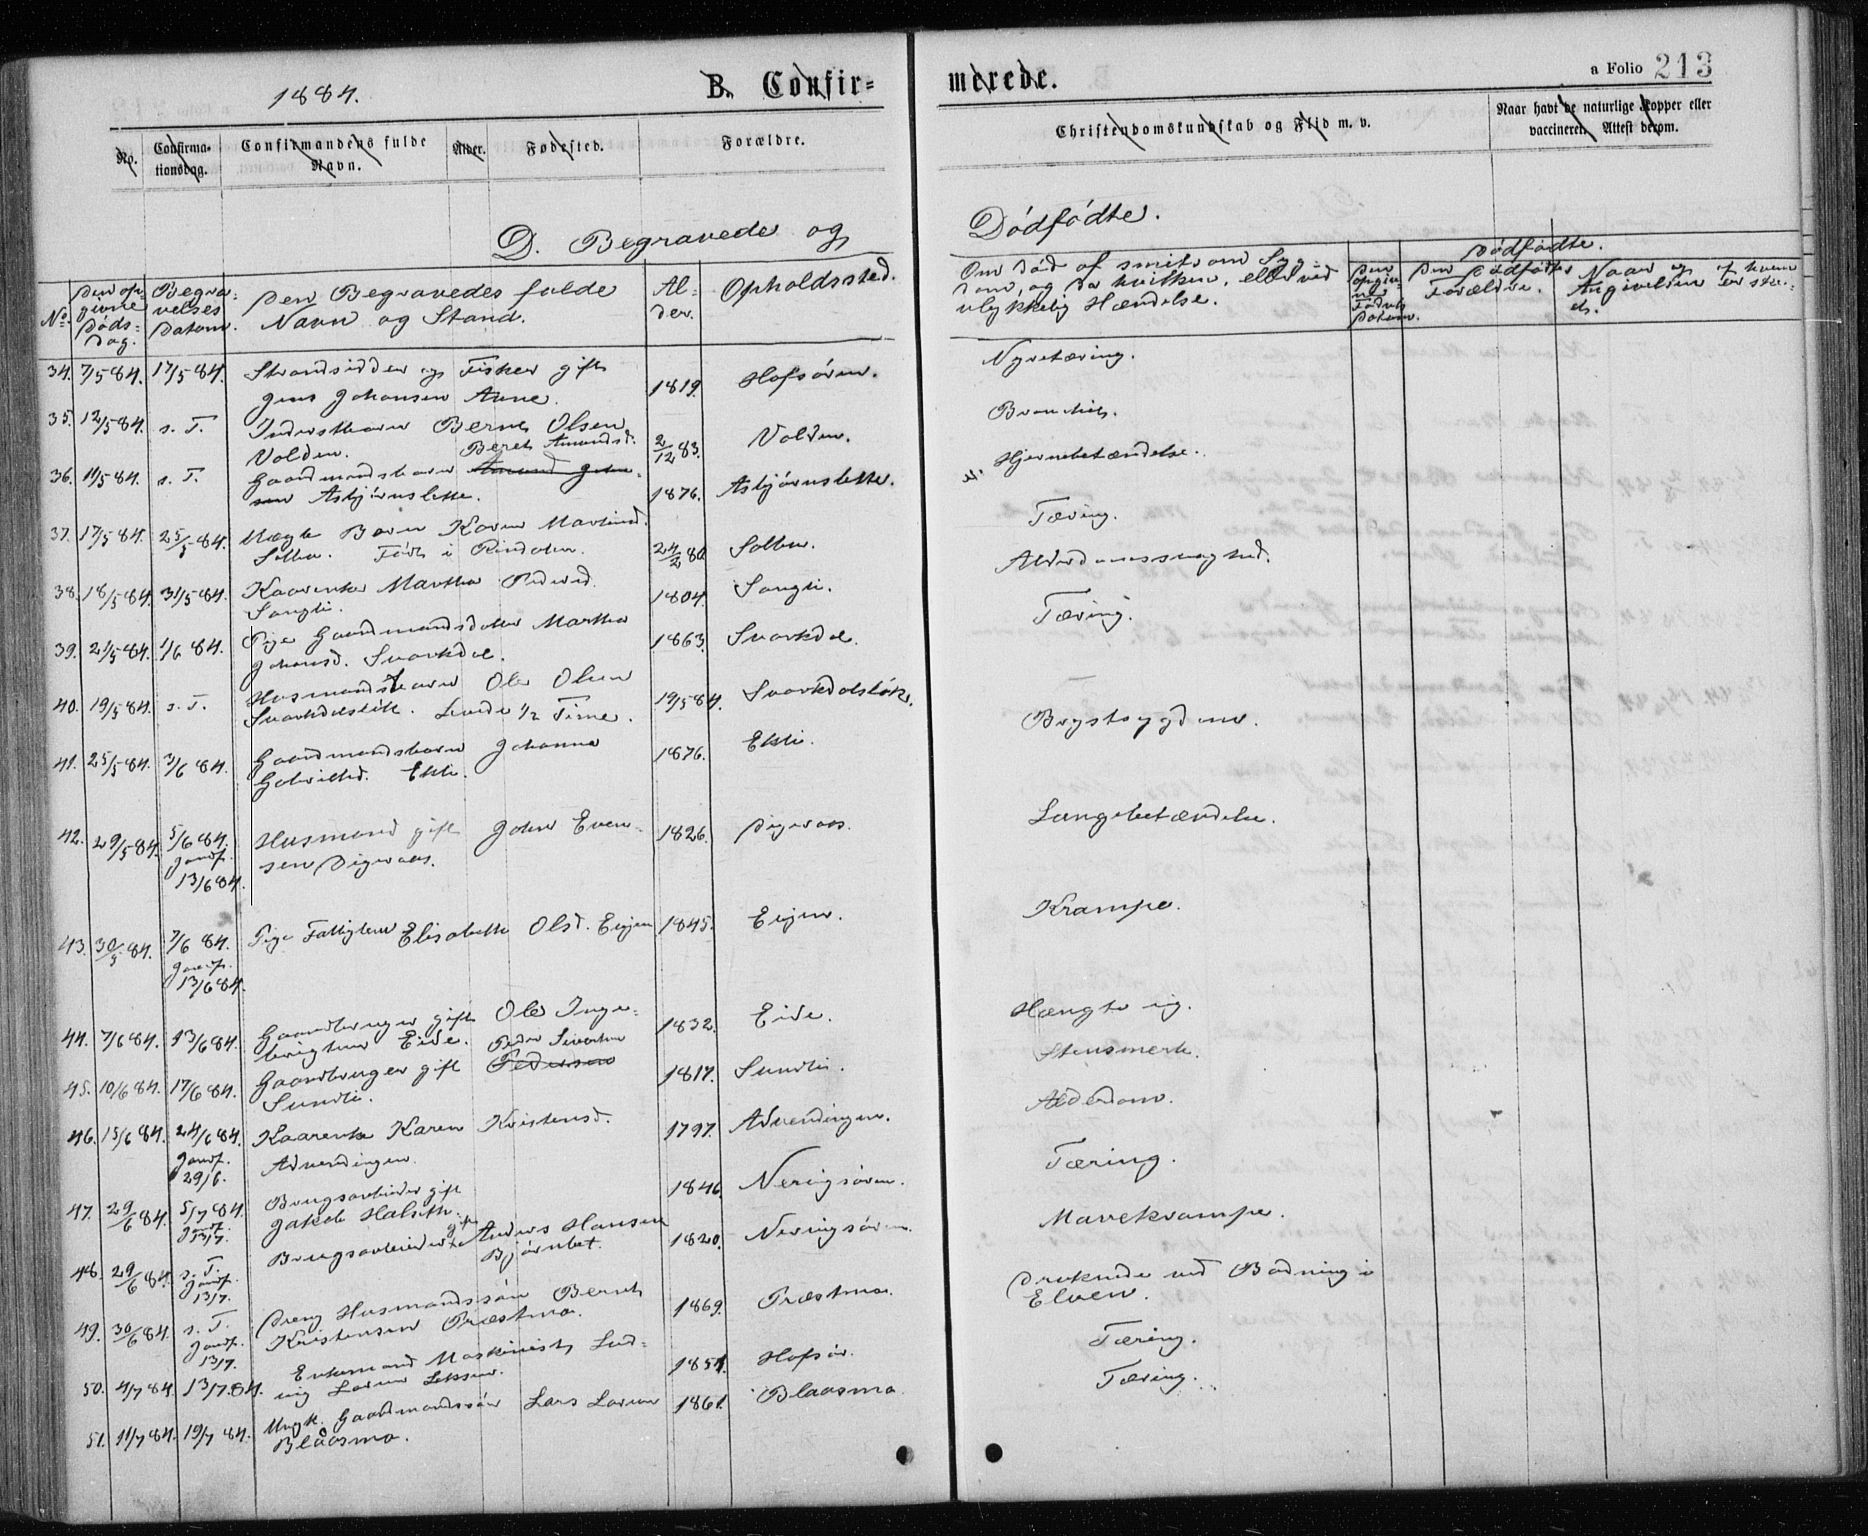 a Folio 213
1884.
B. Confirmerede.
No.
Confirmationsdag.
Confirmandens fulde Navn.
Alder.
Fødested.
Forældre.
Christendomskundskab og Flid m. v.
Naar havt de naturlige Kopper eller vaccineret. Attest derom.
D. Begravede og Dödfödte.
No.
Den opgivne Döds-Dag.
Begravelses Datum.
Den Begravedes fulde Navn og Stand.
Alder.
Opholdssted.
Om död af smitsom Sygdom, og da hvilken, eller ved ulykkelig Hændelse.
Dödfödte.
Den opgivne Födsels Datum.
Den Dödfödtes Forældre.
Naar og af hvem Angivelsen er skeet.
34. 7/5 84. 17/5 84. Strandsidder og Fisker gift Jens Johansen Aune. 1819. Hofsören. Nyretæring.
35. 12/5 84. s. T. Inderstbarn Bernt Olsen Volden. 2/12 83. Volden. Bronchit.
36. 11/5 84. s. T. Gaardmandsbarn Beret Amundsd. Asbjörnslette. 1876. Asbjörnslette. Hjernebetændelse.
37. 17/5 84. 25/5 84. Uægte Barn Karen Martinsd. Solben. Födt i Rindalen. 24/2 80 Solben. Tæring.
38. 18/5 84. 31/5 84. Kaarenke Martha Pedersd. Songli. 1804. Songli. Alderdomssvaghed.
39. 21/5 84. 1/6 84. Pige Gaardmandsdatter Martha Johansd. Svorkdal. 1863. Svorkdal. Tæring.
40. 19/5 84. s. T. Husmandsbarn Ole Olsen Levede 1/2 Time. 19/5 84.
41. 25/5 84. 3/6 84. Gaardmandsbarn Johanna Elsli. 1876. Elsli. Brystsygdom.
42. 29/5 84. 5/6 84. Jordf. 13/6 84. Husmand gift John Evensen Digeraas. 1826. Digeraas. Lungebetændelse.
43. 30/5 84. 7/6 84. Jordf. 13/6 84. Pige Fattiglem Elisabeth Olsd. Eijen 1845. Eijen. Krampe.
44. 7/6 84. 13/6 84. Gaardbruger gift Ole Ingebrigtsen Eide. 1832. Eide. Hængte sig.
45. 10/6 84. 17/6 84. Gaardbruger gift Peder Sivertsen Pedersen Sundli. 1817. Sundli. Stensmerte.
46. 15/6 84. 24/6 84. Jordf. 29/6. Kaarenke Karen Kristensd. Advendingen. 1797. Advendingen. Alderdom.
47. 29/6 84. 5/7 84. Jordf. 13/7. Brugsarbeider gift Jakob Halseth. 1846. Neringsören. Tæring.
48. 29/6 84. s. T. Jordf. 13/7. Brugsarbeider gift Anders Hansen Björnbet. 1820. Neringsören. Mavekrampe.
49. 30/6 84. s. T. Jordf. 13/7. Dreng Husmandssön Bernt Kristensen Præstmo. 1869. Præstmo. Druknede ved Badning i Elven.
50. 4/7 84. 13/7 84. Enkemand Maskinist Ludvig Larsen 1851. Hofsör. Tæring.
51. 11/7 84. 19/7 84. Ungk. Gaardmandssön Lars Larsen Blaasmo. 1861. Blaasmo. Tæring.